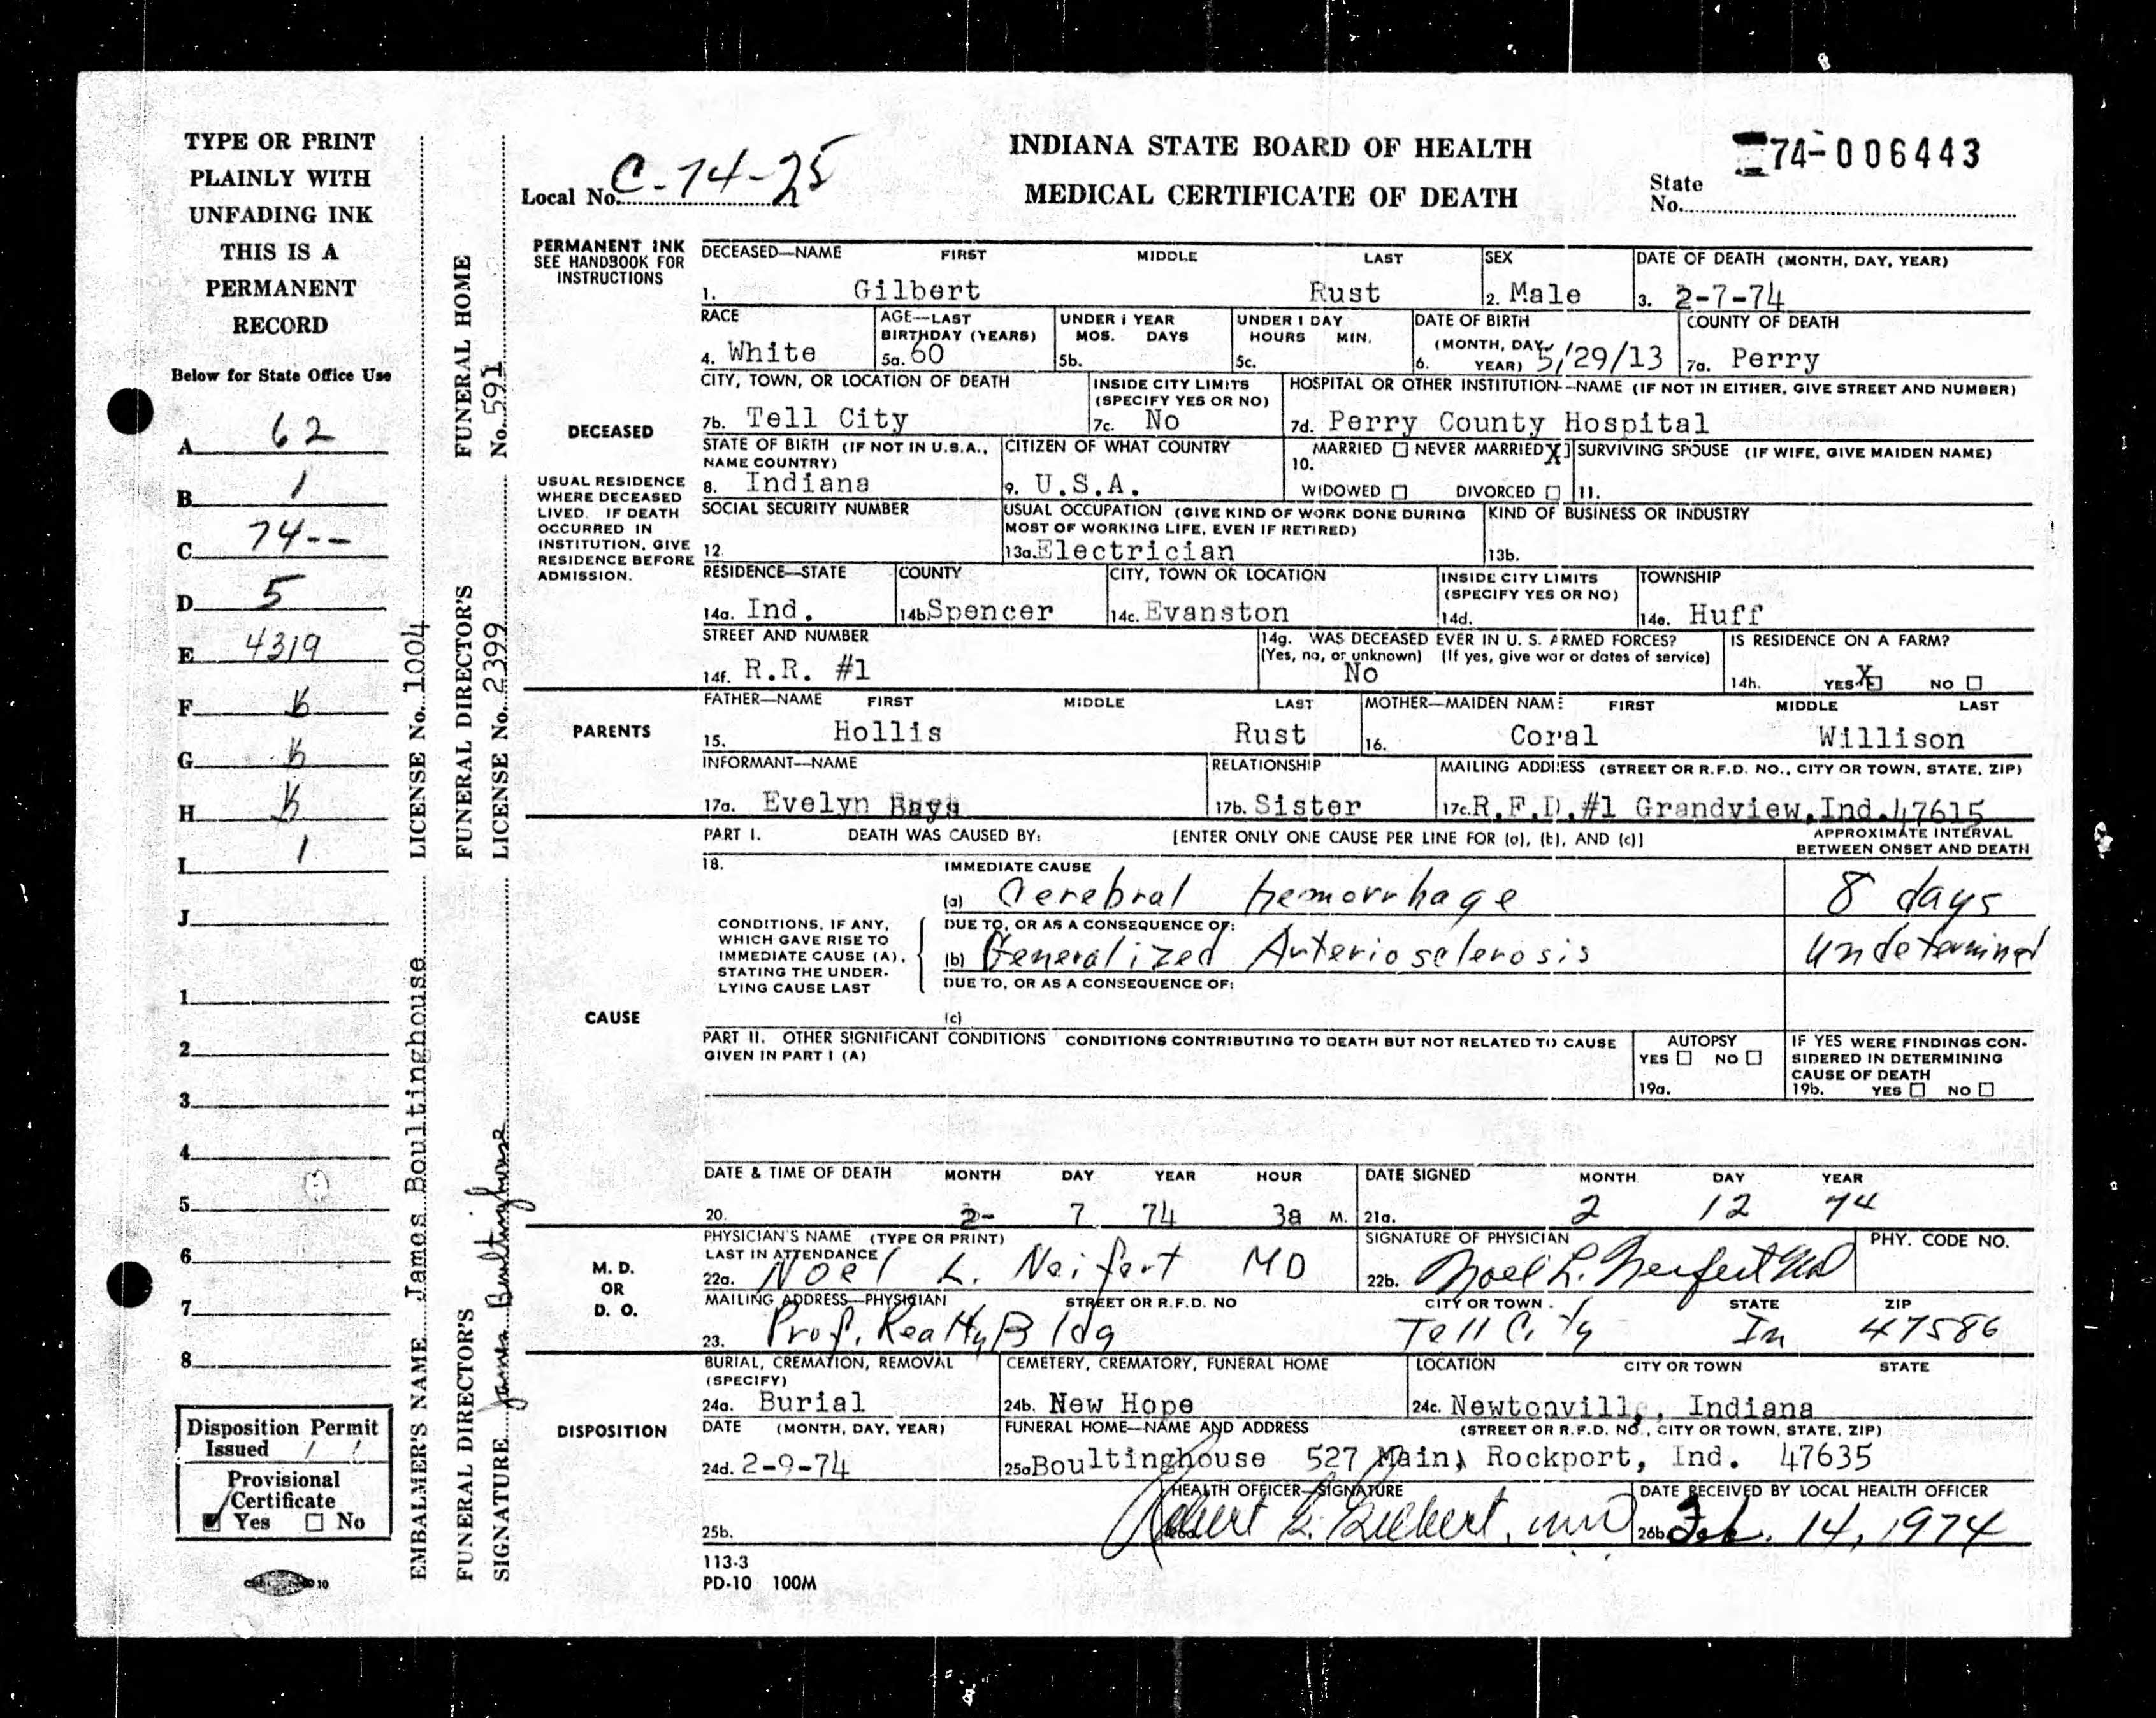 TYPE OR PRINT
PLAINLY WITH
UNFADING INK
THIS IS A
PERMANENT
RECORD
Below for State Office Use
A 62
B 1
C 74--
D 5
E 4319
F
G
H
I 1
J
1
2
3
4
5
6
7
8
Disposition Permit
Issued
Provisional
Certificate
Yes No
EMBALMER'S NAME James Boultinghouse LICENSE No. 1004
FUNERAL DIRECTOR'S FUNERAL DIRECTOR'S FUNERAL HOME
SIGNATURE James Boultinghouse LICENSE No. 2399 No. 591
Local No. C-74-25
INDIANA STATE BOARD OF HEALTH
MEDICAL CERTIFICATE OF DEATH
74-006443
State
No.
PERMANENT INK
SEE HANDBOOK FOR
INSTRUCTIONS
DECEASED—NAME FIRST MIDDLE LAST SEX DATE OF DEATH (MONTH, DAY, YEAR)
1. Gilbert Rust 2. Male 3. 2-7-74
RACE AGE—LAST BIRTHDAY (YEARS) UNDER 1 YEAR MOS. DAYS UNDER 1 DAY HOURS MIN. DATE OF BIRTH (MONTH, DAY, YEAR) COUNTY OF DEATH
4. White 5a. 60 5b. 5c. 6. 5/29/13 7a. Perry
DECEASED
CITY, TOWN, OR LOCATION OF DEATH INSIDE CITY LIMITS (SPECIFY YES OR NO) HOSPITAL OR OTHER INSTITUTION—NAME (IF NOT IN EITHER, GIVE STREET AND NUMBER)
7b. Tell City 7c. No 7d. Perry County Hospital
USUAL RESIDENCE
WHERE DECEASED
LIVED. IF DEATH
OCCURRED IN
INSTITUTION, GIVE
RESIDENCE BEFORE
ADMISSION.
STATE OF BIRTH (IF NOT IN U.S.A., NAME COUNTRY) CITIZEN OF WHAT COUNTRY 10. MARRIED NEVER MARRIED X WIDOWED DIVORCED SURVIVING SPOUSE (IF WIFE, GIVE MAIDEN NAME)
8. Indiana 9. U.S.A. 11.
SOCIAL SECURITY NUMBER USUAL OCCUPATION (GIVE KIND OF WORK DONE DURING MOST OF WORKING LIFE, EVEN IF RETIRED) KIND OF BUSINESS OR INDUSTRY
12. 13a. Electrician 13b.
RESIDENCE—STATE COUNTY CITY, TOWN OR LOCATION INSIDE CITY LIMITS (SPECIFY YES OR NO) TOWNSHIP
14a. Ind. 14b. Spencer 14c. Evanston 14d. 14e. Huff
STREET AND NUMBER 14g. WAS DECEASED EVER IN U. S. ARMED FORCES? (Yes, no, or unknown) (If yes, give war or dates of service) IS RESIDENCE ON A FARM?
14f. R.R. #1 No 14h. YES X NO
PARENTS
FATHER—NAME FIRST MIDDLE LAST MOTHER—MAIDEN NAME FIRST MIDDLE LAST
15. Hollis Rust 16. Coral Willison
INFORMANT—NAME RELATIONSHIP MAILING ADDRESS (STREET OR R.F.D. NO., CITY OR TOWN, STATE, ZIP)
17a. Evelyn 17b. Sister 17c. R.F.D.#1 Grandview, Ind. 47615
PART I. DEATH WAS CAUSED BY: [ENTER ONLY ONE CAUSE PER LINE FOR (a), (b), AND (c)] APPROXIMATE INTERVAL BETWEEN ONSET AND DEATH
18. IMMEDIATE CAUSE
(a) Cerebral hemorrhage 8 days
CONDITIONS, IF ANY,
WHICH GAVE RISE TO
IMMEDIATE CAUSE (A),
STATING THE UNDER-
LYING CAUSE LAST
DUE TO, OR AS A CONSEQUENCE OF:
(b) Generalized Arteriosclerosis undetermined
DUE TO, OR AS A CONSEQUENCE OF:
CAUSE
(c)
PART II. OTHER SIGNIFICANT CONDITIONS CONDITIONS CONTRIBUTING TO DEATH BUT NOT RELATED TO CAUSE GIVEN IN PART I (A)
AUTOPSY YES NO 19a.
IF YES WERE FINDINGS CONSIDERED IN DETERMINING CAUSE OF DEATH 19b. YES NO
DATE & TIME OF DEATH MONTH DAY YEAR HOUR DATE SIGNED MONTH DAY YEAR
20. 2- 7 74 3a M. 21a. 2 12 74
M. D.
OR
D. O.
PHYSICIAN'S NAME (TYPE OR PRINT) LAST IN ATTENDANCE SIGNATURE OF PHYSICIAN PHY. CODE NO.
22a. Noel L. Neifert MD 22b. Noel L. Neifert MD
MAILING ADDRESS—PHYSICIAN STREET OR R.F.D. NO CITY OR TOWN STATE ZIP
23. Prof. Realty Bldg Tell City In 47586
DISPOSITION
BURIAL, CREMATION, REMOVAL (SPECIFY) CEMETERY, CREMATORY, FUNERAL HOME LOCATION CITY OR TOWN STATE
24a. Burial 24b. New Hope 24c. Newtonville, Indiana
DATE (MONTH, DAY, YEAR) FUNERAL HOME—NAME AND ADDRESS (STREET OR R.F.D. NO., CITY OR TOWN, STATE, ZIP)
24d. 2-9-74 25a Boultinghouse 527 Main, Rockport, Ind. 47635
HEALTH OFFICER—SIGNATURE DATE RECEIVED BY LOCAL HEALTH OFFICER
25b. 26b. Feb. 14, 1974
113-3
PD-10 100M